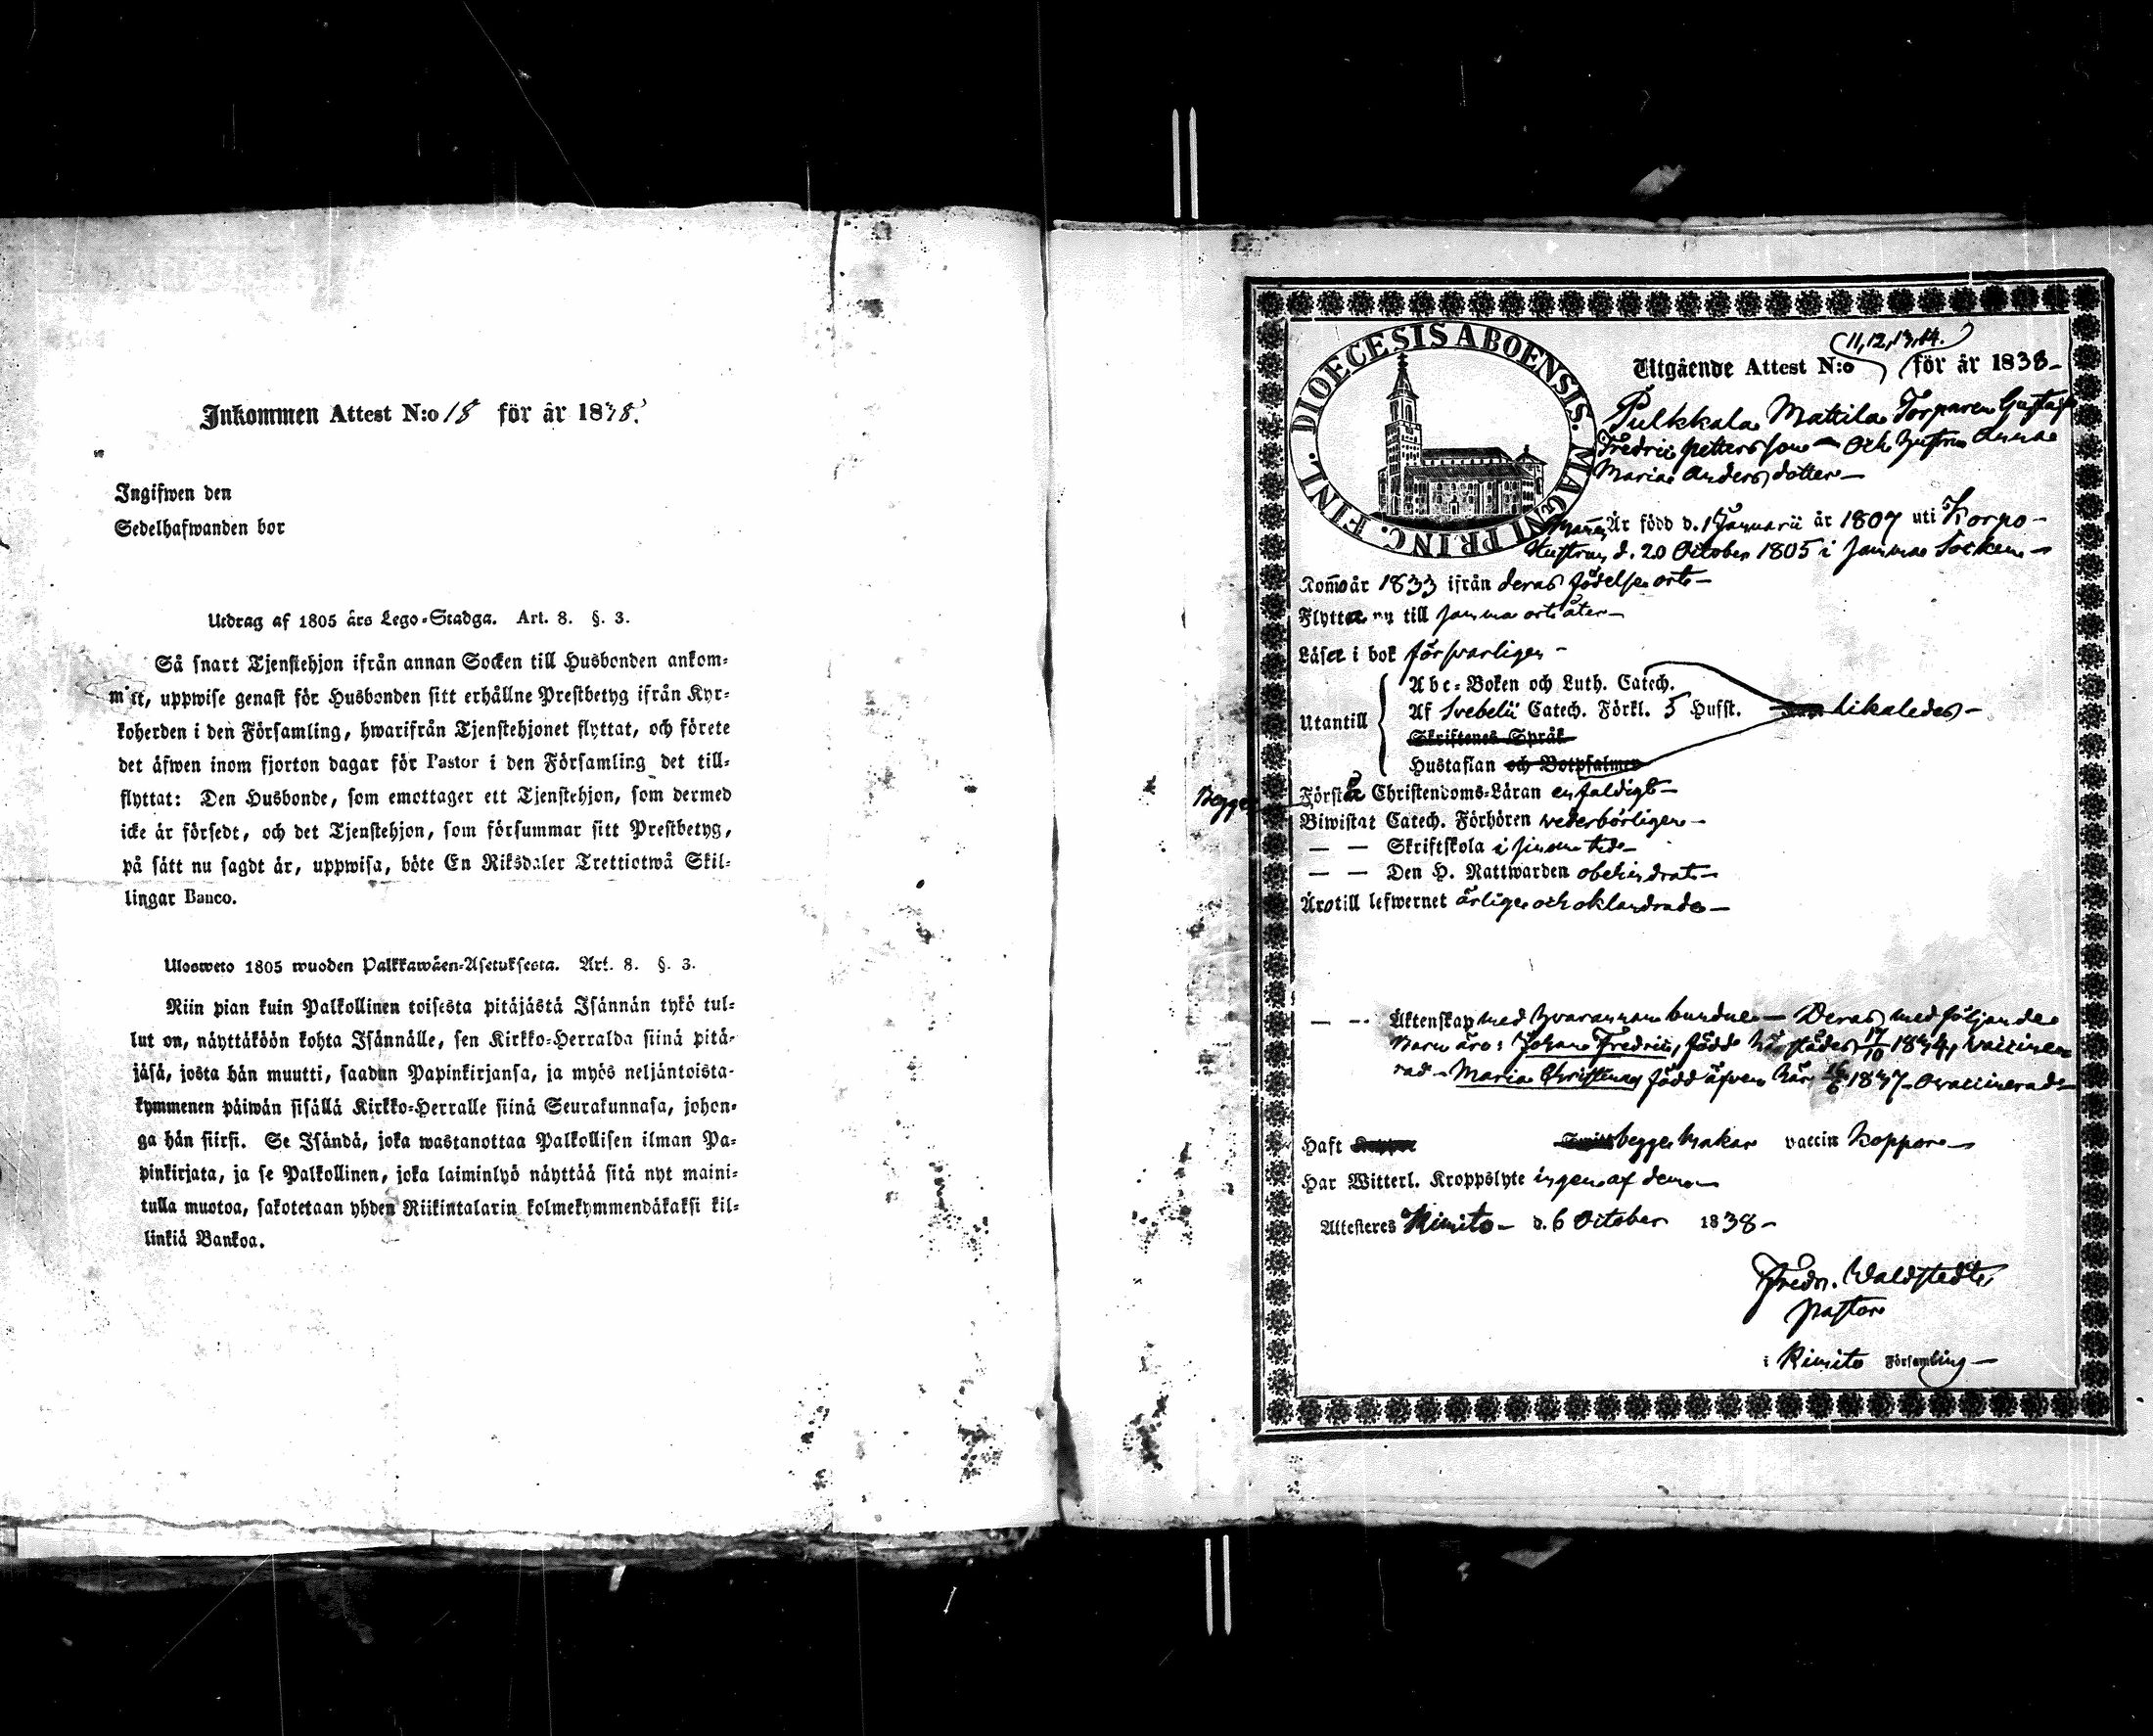 Inkommen Attest N:o 18 för år 1838.
Ingifwen den
Sedelhafwanden bor
Utdrag af 1805 års Lego-Stadga. Art. 8. §. 3.
Så snart Tjenstehjon ifrån annan Socken till Husbonden ankom-
mit, uppwise genast för Husbonden sitt erhållne Prestbetyg ifrån Kyr-
koherden i den Församling, hwarifrån Tjenstehjonet flyttat, och förete
det äfwen inom fjorton dagar för Pastor i den Församling det till-
flyttat: Den Husbonde, som emottager ett Tjenstehjon, som dermed
icke är försedt, och det Tjenstehjon, som försummar sitt Prestbetyg,
på sätt nu sagdt är, uppwisa, böte En Riksdaler Trettiotwå Skil-
lingar Banco.
Ulosweto 1805 wuoden Palkkawäen-Asetuksesta. Art. 8. §. 3.
Niin pian kuin Palkollinen toisesta pitäjästä Isännän tykö tul-
lut on, näyttäköön kohta Isännälle, sen Kirkko-Herralda siinä pitä-
jäsä, josta hän muutti, saadun Papinkirjansa, ja myös neljäntoista-
kymmenen päiwän sisällä Kirkko-Herralle siinä Seurakunnasa, johon-
ga hän siirsi. Se Isändä, joka wastanottaa Palkollisen ilman Pa-
pinkirjata, ja se Palkollinen, joka laiminlyö näyttää sitä nyt maini-
tulla muotoa, sakotetaan yhden Riikintalarin kolmekymmendäkaksi kil-
linkiä Bankoa.
DIOECESIS ABOENSIS. MAGNI PRINC. FINL.
Utgående Attest N:o 11, 12, 13, 14. för år 1838
Pulkkala Mattila Torparen Gustaf
Fredric Pettersson och Hustrun Anna
Maria Andersdotter
Mannen Är född d. 1 Januarii år 1807 uti Korpo
Hustrun d. 20 October 1805 i samma Socken
Kom̄o år 1833 ifrån deras födelse ort
Flytta nu till samma ort åter
Läser i bok försvarligen
Utantill
Abc-Boken och Luth. Catech.
Af Svebelii Catech. Förkl. 5 Hufst. likaledes
Skriftenes Språk
Hustaflan och Botpsalmer
Begge Förstå Christendoms-Läran enfaldigt
Biwistat Catech. Förhören wederbörligen
— — Skriftskola i sinom tid
— — Den H. Nattwarden obehindrat
Äro till lefwernet ärlige och oklandrade
— — Äktenskap med hvarannan bundne — Deras medföljande
Barn äro: Johan Fredric, född härstädes 17/10 1834, vaccine
rad — Maria Christina, född äfven här, 16/6 1837 — ovaccinerad
Haft begge Makar vaccin koppor
Har Witterl. Kroppslyte ingen af dem
Attesteres Kimito d. 6 October 1838
Fredr. Waldstedt
Pastor
i Kimito Församling